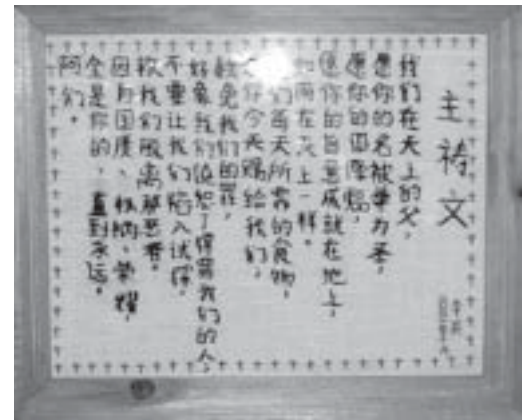 主祷文
我们在天上的父，
愿你的名被尊为圣，
愿你的国降临，
愿你的旨意成就在地上，
如同在天上一样。
我们每天所需的食物，
求你今天赐给我们，
赦免我们的罪，
好象我们饶恕了得罪我们的人，
不要让我们陷入试探，
救我们脱离那恶者。
因为国度、权柄、荣耀，
全是你的，直到永远。
阿们。